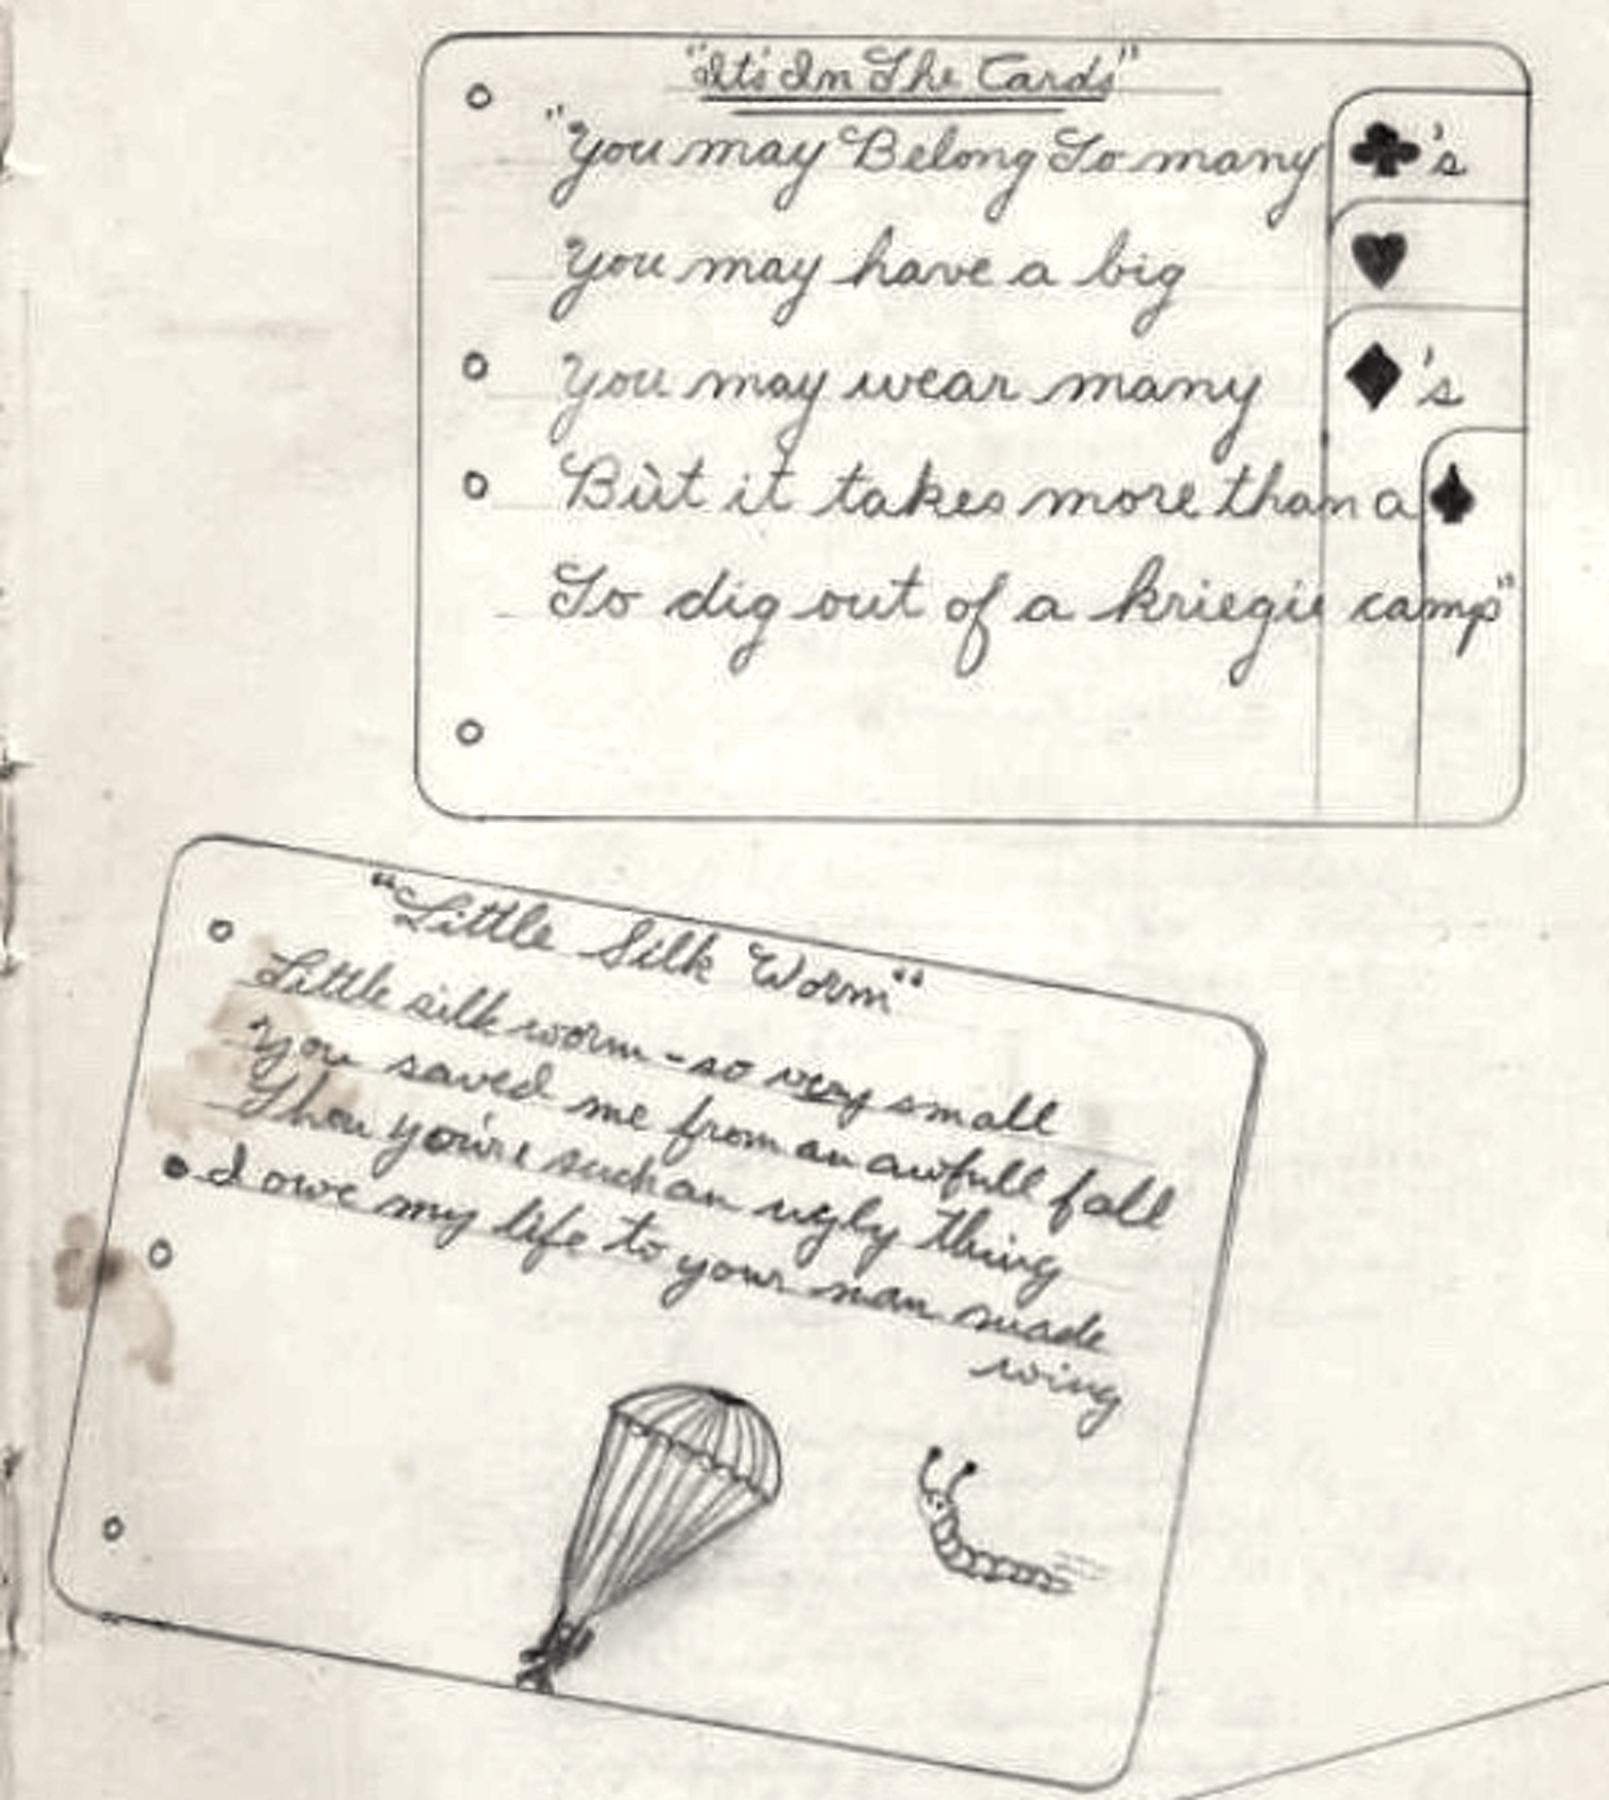 "It's In The Cards"
"You may Belong To many ♣'s
You may have a big ♥
You may wear many ♦'s
But it takes more than a ♠
To dig out of a kriegie camp"
"Little Silk Worm"
Little silk worm - so very small
You saved me from an awfull fall
Thou you're such an ugly thing
I owe my life to your man made
wing